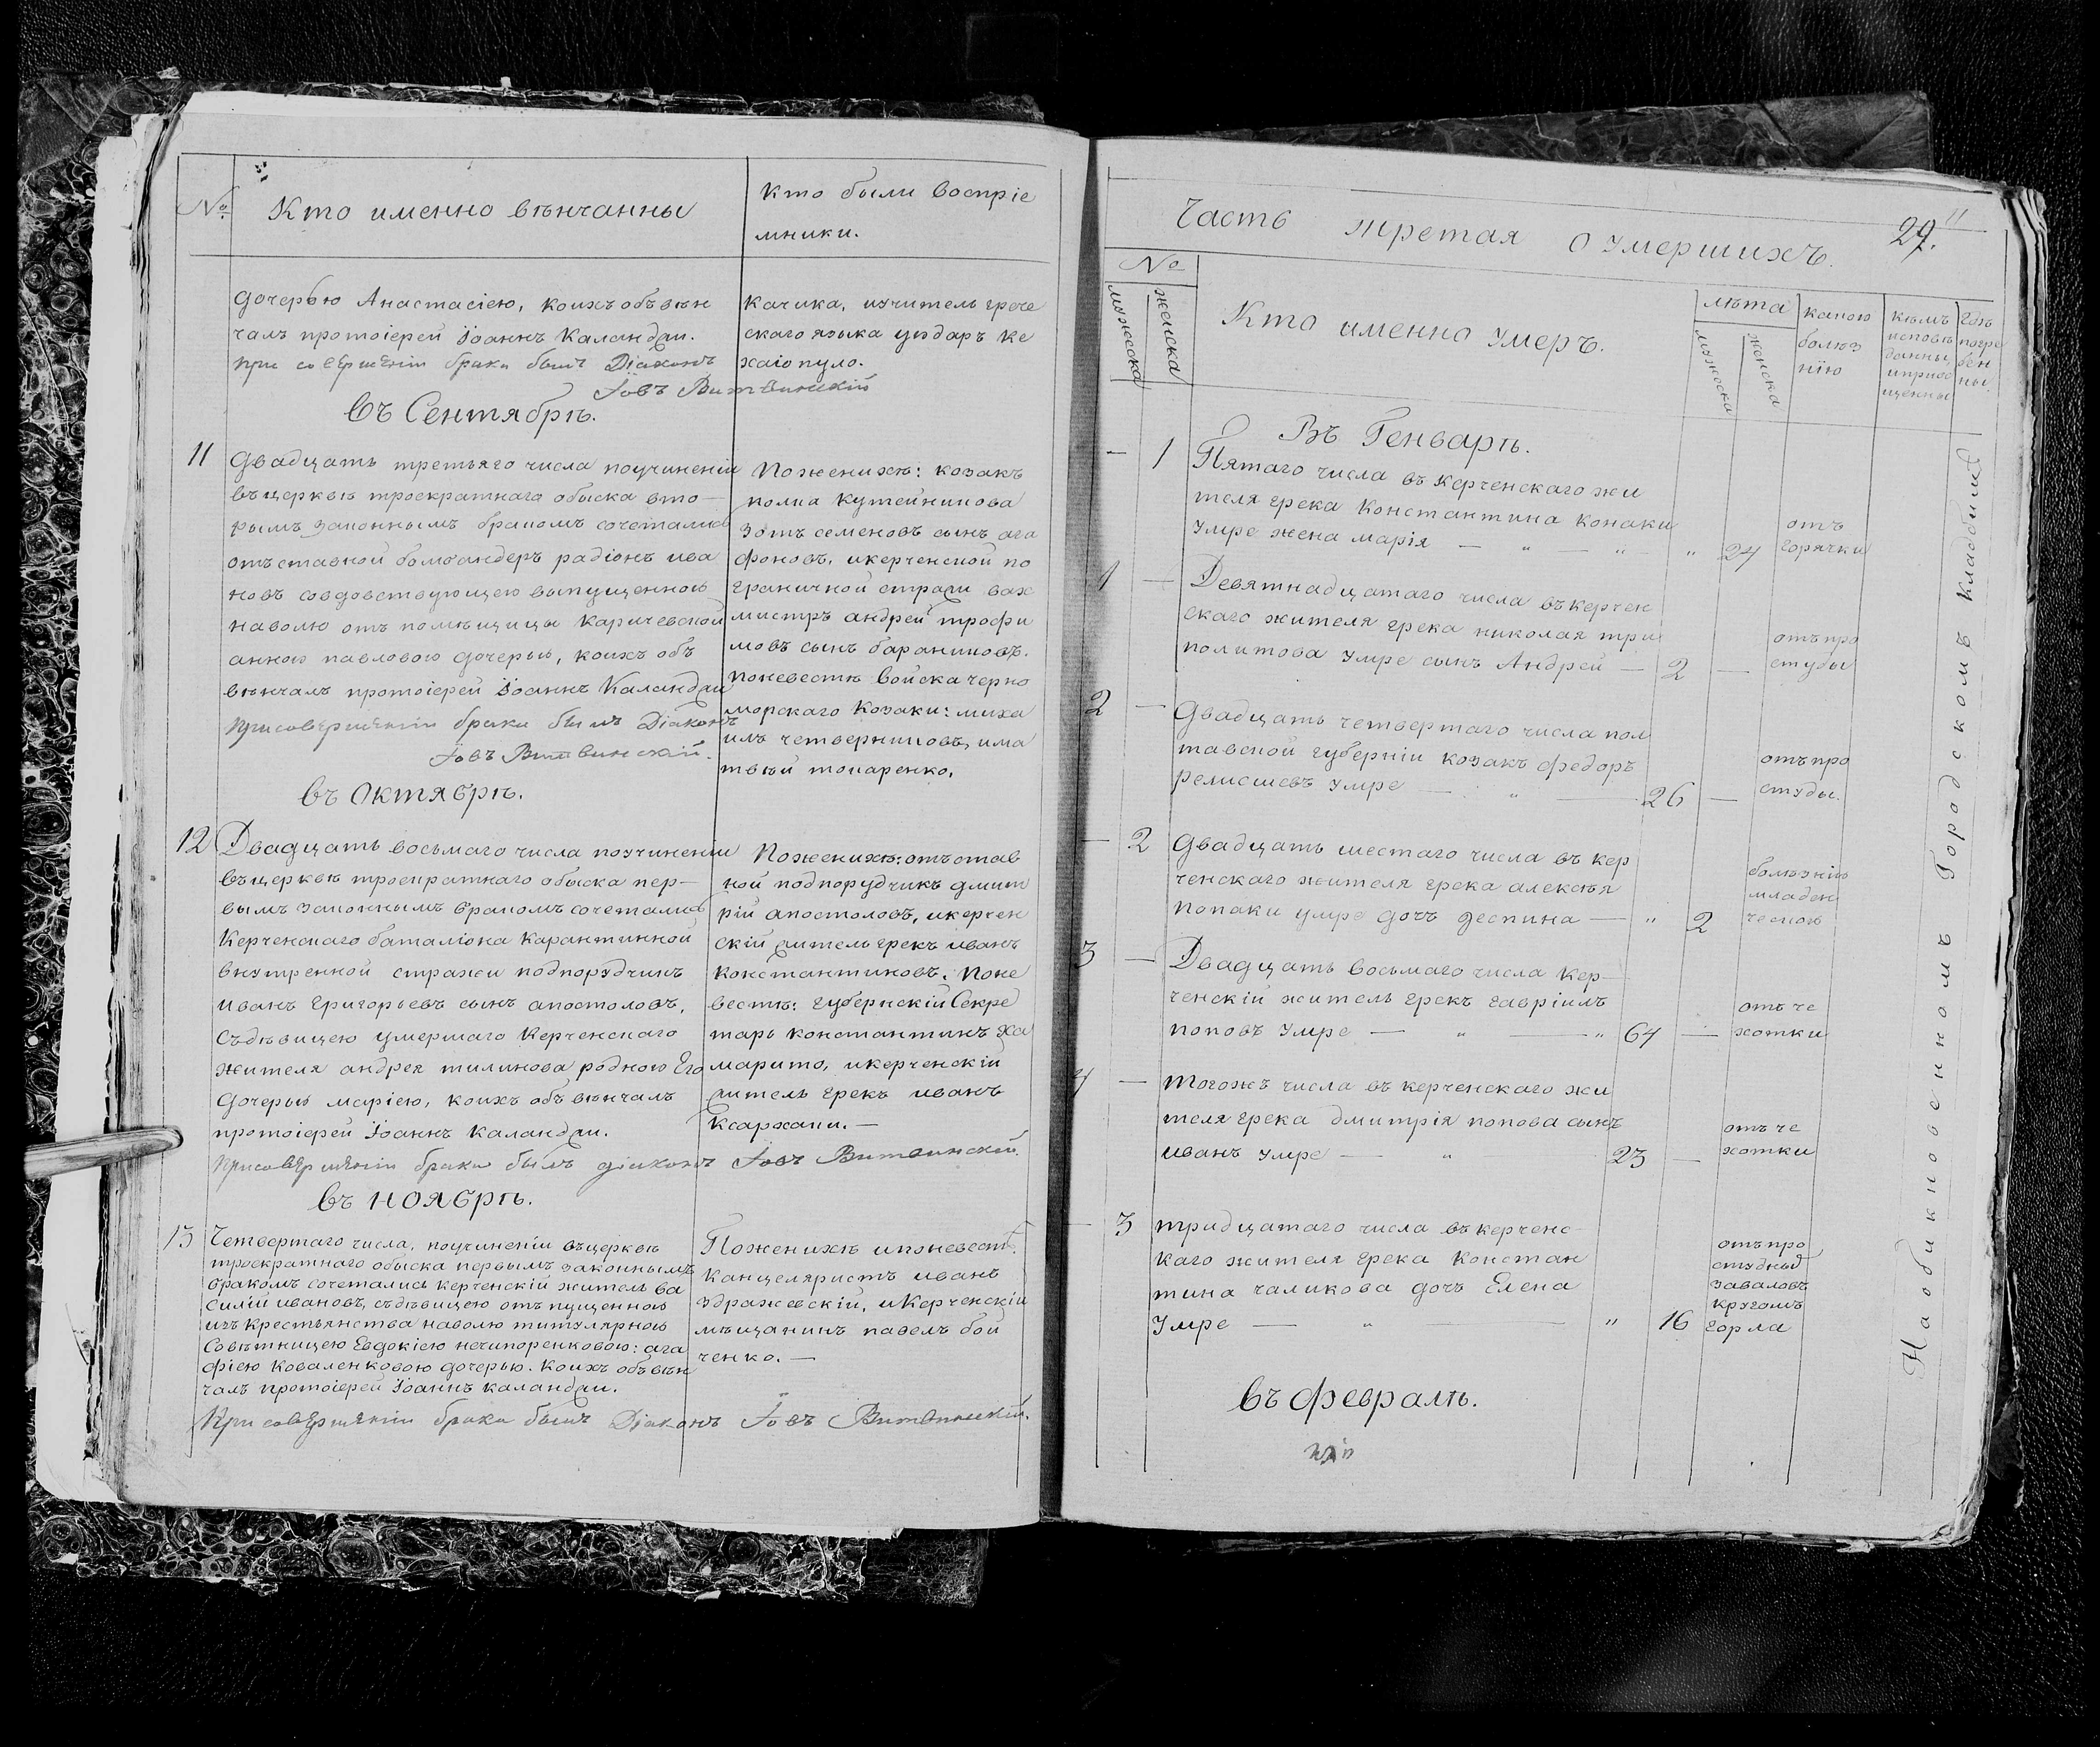 №
Кто именно вѣнчанны
Кто были воспріе
мники.
дочерью Анастасіею, коихъ объвѣн
чалъ протоіерей Іоаннъ Каландзи.
При совершеніи брака былъ Діаконъ
Іовъ Витвинскій
Качика, иучитель грече
скаго языка
хаіопуло.
въ Сентябрѣ.
11
Двадцать третьяго числа поучиненіи
въцерквѣ троекратнаго обыска вто-
рымъ законнымъ бракомъ сочетались
отъставной бомбандеръ радіонъ ива
новъ совдовствующею выпущенною
наволю отъ помѣщицы Каричевской
анною павловою дочерью, коихъ объ
вѣнчалъ протоіерей Іоаннъ Каландзи
Присовершеніи брака былъ Діаконъ
Іовъ Витвинскій.
Поженихѣ: козакъ
полка кутейникова
зотъ семеновъ сынъ ага
фоновъ, икерченской по
граничной стражи вах
мистръ андрей трофи
мовъ сынъ бараниковъ.
поневестѣ войска черно
морскаго козаки: миха
илъ четверниковъ, има
твѣй токаренко.
въ Октябрѣ.
12
Двадцать восьмаго числа поучиненіи
въцерквѣ троекратнаго обыска пер-
вымъ законнымъ бракомъ сочетались
Керченскаго баталіона карантинной
внутренной стражи подпорудчикъ
иванъ григорьевъ сынъ апостоловъ,
съдѣвицею умершаго Керченскаго
жителя андрея тиликова родною Его
дочерью маріею, коихъ объвѣнчалъ
протоіерей Іоаннъ каландзи.
Присовершеніи брака былъ діаконъ Іовъ Витвинскій.
Поженихѣ: отъотав
ной подпорудчикъ дмит
рій апостоловъ, икерчен
скій житель грекъ иванъ
константиновъ. Поне
вестѣ: губернскій Секре
тарь константинъ ха
марито, икерченскій
житель грекъ иванъ
Ксархаки. —
въ ноябрѣ.
13
Четвертаго числа, поучиненіи въцерквѣ
троекратнаго обыска первымъ законнымъ
бракомъ сочетались керченскій житель ва
силій ивановъ, съдѣвицею отъпущенною
изъ крестьянства наволю титулярною
Совѣтницею Евдокіею нечипоренковою: ага
фіею коваленковою дочерью. коихъ объвѣн
чалъ протоіерей Іоаннъ каландзи.
При совершеніи брака былъ Діаконъ Іовъ Витвинскій.
Поженихѣ ипоневестѣ.
канцеляристъ иванъ
здражевскій, икерченскій
мѣщанинъ павелъ бой
ченко. —
Часть третая о умершихъ.
29.
№
мужеска
женска
Кто именно умеръ.
лѣта
мужеска
женска
какою
болѣз
нію
кѣмъ
исповѣ
данны,
иприоб
щенны
гдѣ
погре
бен
ны.
Въ Генварѣ.
— 1
Пятаго числа въ керченскаго жи
теля грека Константина конаки
умре жена марія — " — " " 24
отъ
горячки
1 —
Девятнадцатаго числа въкерчен
скаго жителя грека николая три
политова умре сынъ Андрей — 2 —
отъпро
студы
2 —
Двадцать четвертаго числа пол
тавской губерніи козакъ федоръ
релисшевъ умре — " — 26 —
отъпро
студы.
— 2
Двадцать шестаго числа въ кер
ченскаго жителя грека алексѣя
попаки умре дочь деспина — " 2
болѣзнію
младен
ческою
3 —
Двадцать восьмаго числа кер-
ченскій житель грекъ гавріилъ
поповъ умре — " — " 64 —
отъ че
хотки
4 —
тогожъ числа въ керченскаго жи
теля грека дмитрія попова сынъ
иванъ умре — " 23 —
отъ че
хотки
— 3
тридцатаго числа въкерченс-
каго жителя грека констан
тина чаликова дочь Елена
умре — " — " 16
отъпро
студный
заваловъ
кругомъ
горла
въ февралѣ.
Наобикновенномъ Городскомъ кладбищѣ